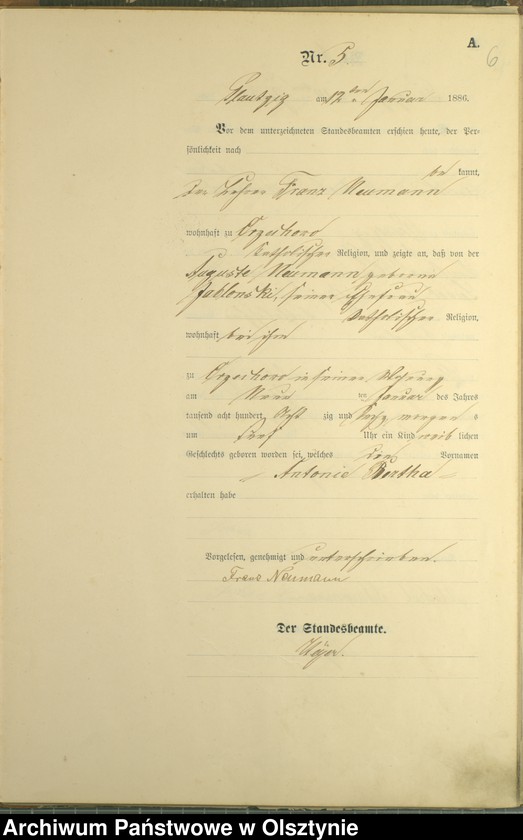 A.
6
Nr. 5.
Plautzig am 12ten Januar 1886.
Vor dem unterzeichneten Standesbeamten erschien heute, der Per-
sönlichkeit nach
be kannt,
der Lehrer Franz Neumann
wohnhaft zu Orzechowo
katholischer Religion, und zeigte an, daß von der
Auguste Neumann geborene
Jablonski, seiner Ehefrau
katholischer Religion,
wohnhaft bei ihm
zu Orzechowo in seiner Wohnung
am Neun ten Januar des Jahres
tausend acht hundert Acht zig und Sechs morgens
um fünf Uhr ein Kind weib lichen
Geschlechts geboren worden sei, welches die Vornamen
Antonie Bertha
erhalten habe
Vorgelesen, genehmigt und unterschrieben.
Franz Neumann
Der Standesbeamte.
Archiwum Państwowe w Olsztynie